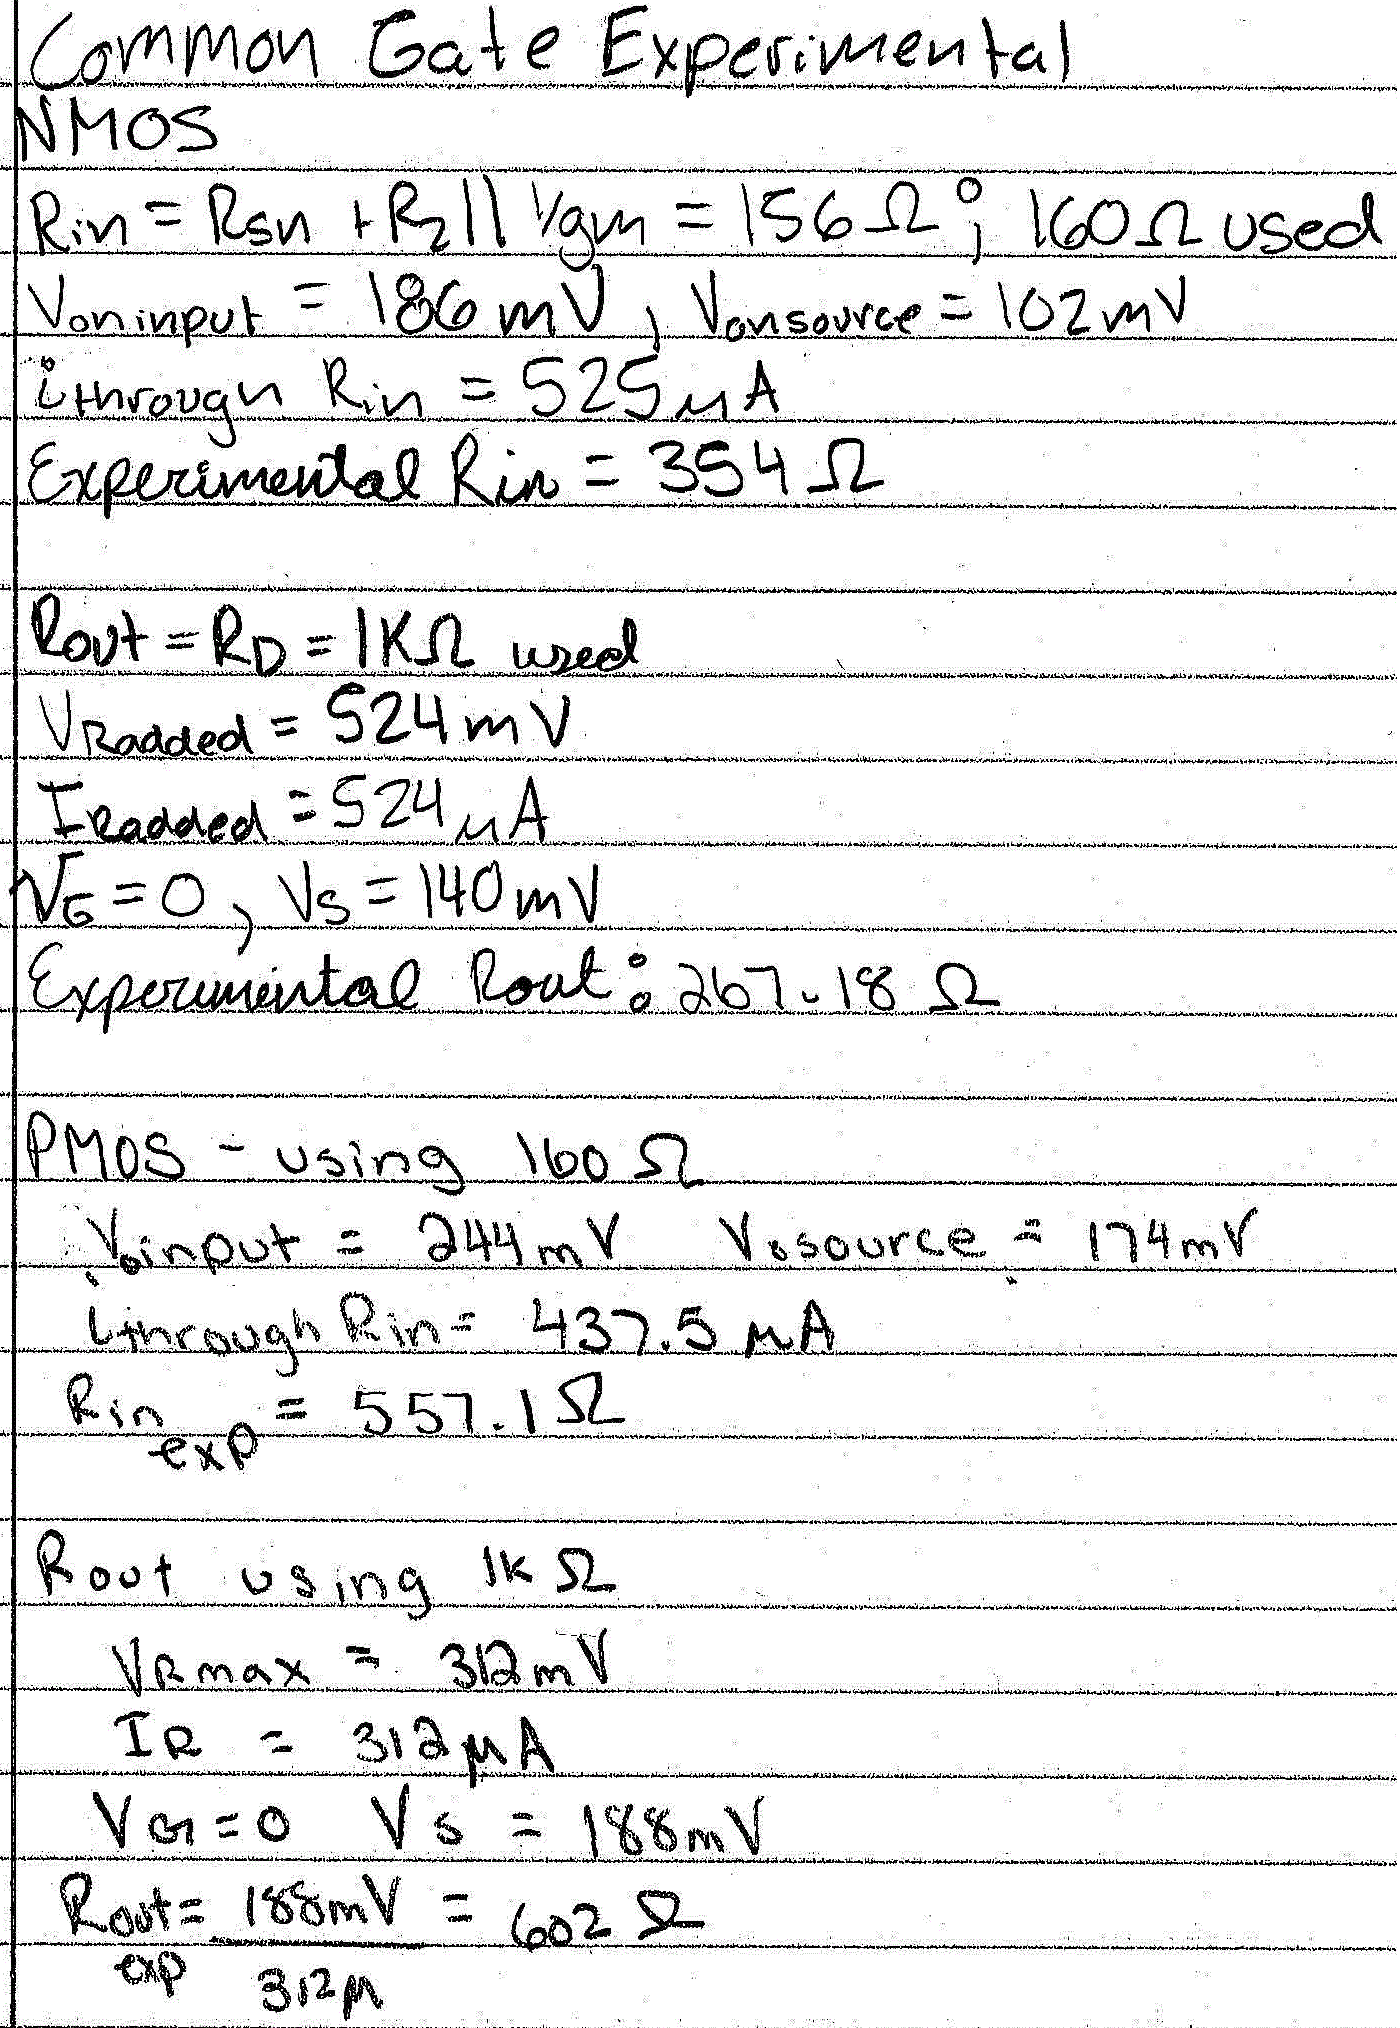 Common Gate Experimental
NMOS
Rin = Rsn + R2 || 1/gm = 156Ω; 160Ω used
Voninput = 186 mV, Vonsource = 102 mV
ithrough Rin = 525 μA
Experimental Rin = 354 Ω
Rout = RD = 1KΩ used
VRadded = 524 mV
IRadded = 524 μA
VG = 0, VS = 140 mV
Experimental Rout: 267.18 Ω
PMOS - using 160 Ω
Voinput = 244 mV Vosource = 174 mV
ithrough Rin = 437.5 μA
Rin exp = 557.1 Ω
Rout using 1k Ω
VRmax = 312 mV
IR = 312 μA
VG = 0 VS = 188 mV
Rout exp = 188mV / 312μ = 602 Ω